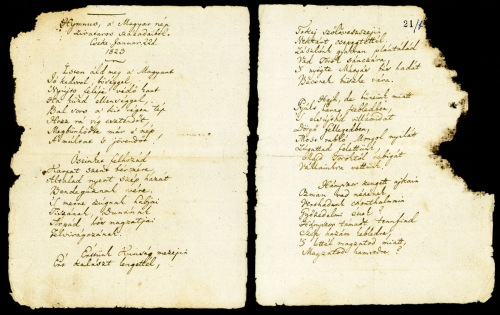 Hymnus, a' Magyar nép
zivataros századaiból.
Cseke Januar. 22d
1823
Isten áldd meg a' Magyart
Jó kedvvel, bőséggel,
Nyújts feléje védő kart
Ha küzd ellenséggel;
Bal sors a' kit régen tép
Hozz rá víg esztendőt,
Megbűnhődte már e' nép
A' multat 's jövendőt!
Őseinket felhozád
Kárpát szent bérczére,
Általad nyert szép hazát
Bendegúznak vére.
'S merre zúgnak habjai
Tiszának, Dunának
Árpád hős magzatjai
Felvirágozának.
Értünk Kunság mezejin
Ért kalászt lengettél,
21/
Tokaj szőlővesszein
Nektárt csepegtettél.
Zászlónk gyakran plántálád
Vad Török sánczára,
'S nyögte Mátyás bús hadát
Bécsnek büszke vára.
Hajh, de bűneink miatt
Gyúlt harag kebledben,
'S elsújtád villámidat
Dörgő fellegedben,
Most rabló Mongol nyilát
Zúgattad felettünk,
Majd Töröktől rabigát
Vállainkra vettünk.
Hányszor zengett ajkain
Ozman vad népének,
Vert hadunk csonthalmain
Győzedelmi ének!
Hányszor támadt tenfiad
Szép hazám kebledre,
'S lettél magzatod miatt,
Magzatod hamvedre?